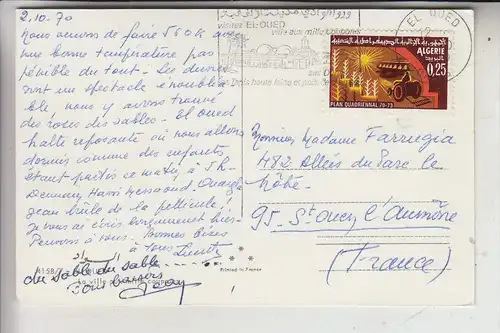 2.10.70
Nous venons de faire 560 K avec
une bonne température pas
pénible du tout. Les dunes
sont un spectacle inoublia
ble nous y avons trouvé
des roses des sables. El oued
halte reposante où nous allons
dormir comme des enfants
étant partis ce matin à 5 h.
Demain Hassi Messaoud. Ouargla
Jean brûle de la pellicule!
Je vous ai écris longuement hier.
Pensons à vous. Bonnes bises
à tous Lucette
du sable du sable
Tous baisers
Jean
4158/
La ville aux mille coupoles
Printed in France
visitez EL-OUED
ville aux mille coupoles
EL OUED
ALGERIE
0,25
PLAN QUADRIENNAL 70-73
Monsieur, Madame Farrugia
482 Allées du Parc le
Nôtre.
95. St Ouen l'Aumône
(France)